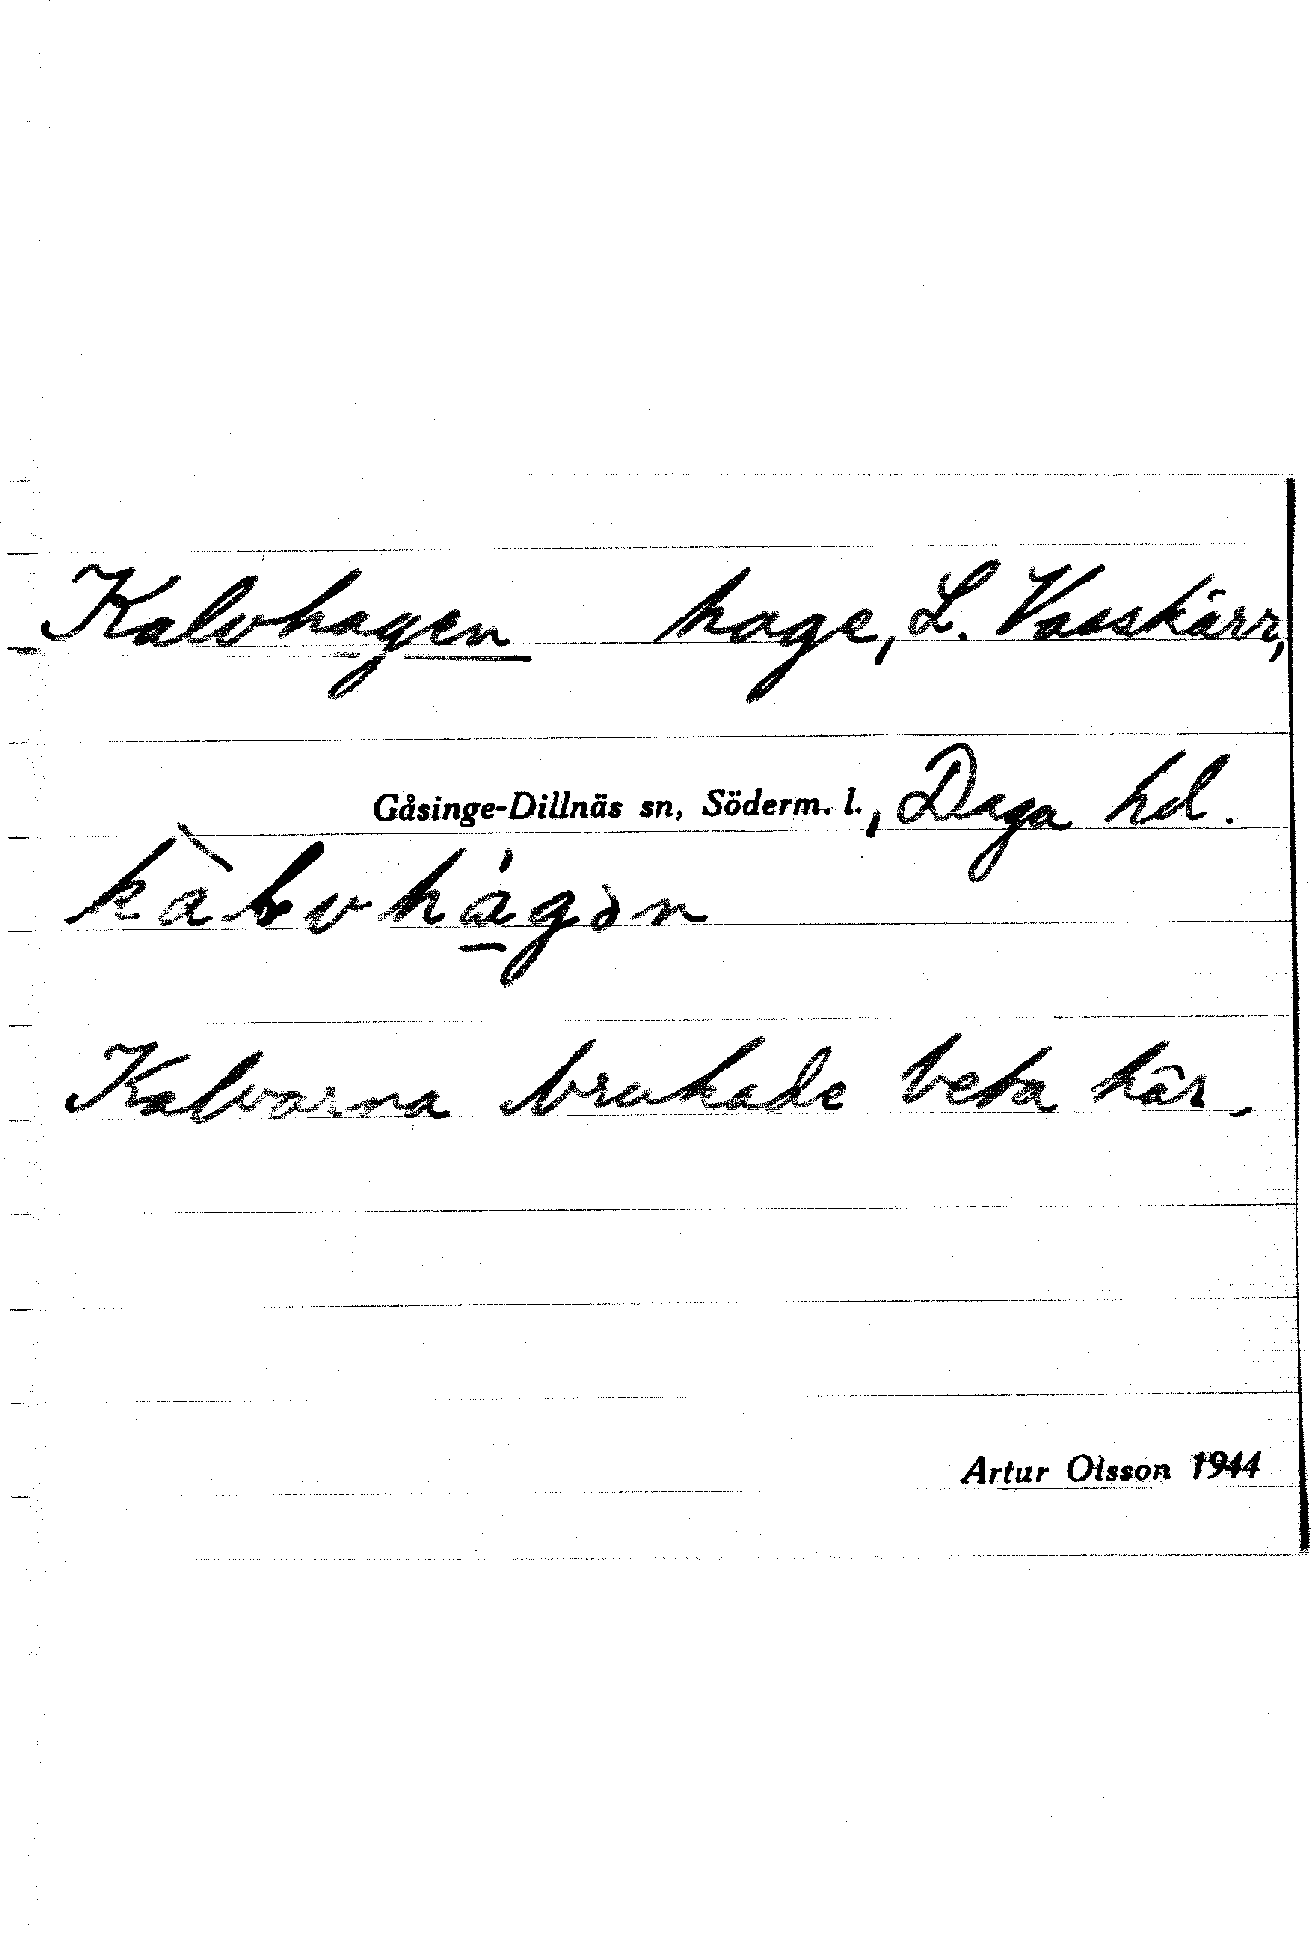 Kalvhagen hage, L. Vasskärr,
Gåsinge-Dillnäs sn, Söderm. l., Daga hd.
kàlvhágən
Kalvarna brukade beta här.
Artur Olsson 1944